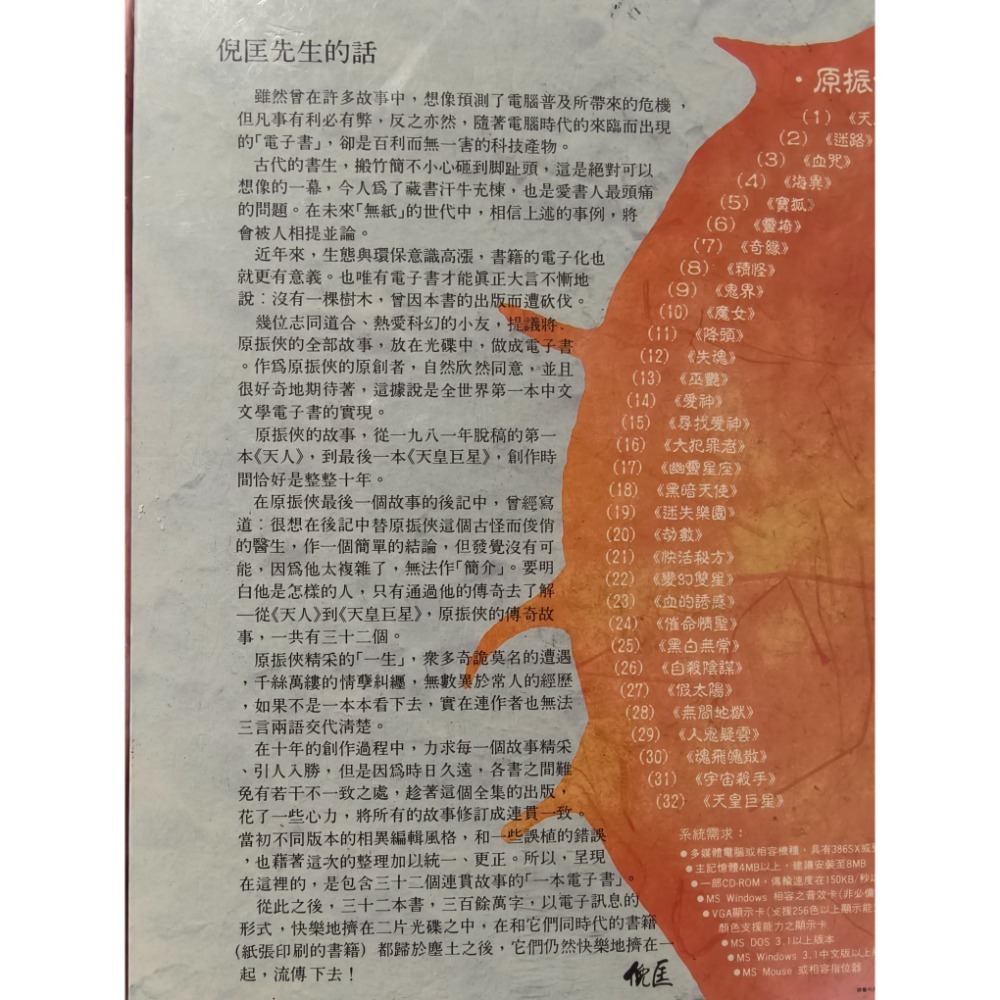 倪匡先生的話
雖然曾在許多故事中，想像預測了電腦普及所帶來的危機，
但凡事有利必有弊，反之亦然，隨著電腦時代的來臨而出現
的「電子書」，卻是百利而無一害的科技產物。
古代的書生，搬竹簡不小心砸到脚趾頭，這是絕對可以
想像的一幕，今人爲了藏書汗牛充棟，也是愛書人最頭痛
的問題。在未來「無紙」的世代中，相信上述的事例，將
會被人相提並論。
近年來，生態與環保意識高漲，書籍的電子化也
就更有意義。也唯有電子書才能眞正大言不慚地
說：沒有一棵樹木，曾因本書的出版而遭砍伐。
幾位志同道合、熱愛科幻的小友，提議將
原振俠的全部故事，放在光碟中，做成電子書
。作爲原振俠的原創者，自然欣然同意，並且
很好奇地期待著，這據說是全世界第一本中文
文學電子書的實現。
原振俠的故事，從一九八一年脫稿的第一
本《天人》，到最後一本《天皇巨星》，創作時
間恰好是整整十年。
在原振俠最後一個故事的後記中，曾經寫
道：很想在後記中替原振俠這個古怪而俊俏
的醫生，作一個簡單的結論，但發覺沒有可
能，因爲他太複雜了，無法作「簡介」。要明
白他是怎樣的人，只有通過他的傳奇去了解
—從《天人》到《天皇巨星》，原振俠的傳奇故
事，一共有三十二個。
原振俠精采的「一生」，衆多奇詭莫名的遭遇
，千絲萬縷的情孽糾纏，無數異於常人的經歷
，如果不是一本本看下去，實在連作者也無法
三言兩語交代清楚。
在十年的創作過程中，力求每一個故事精采
、引人入勝，但是因爲時日久遠，各書之間難
免有若干不一致之處，趁著這個全集的出版，
花了一些心力，將所有的故事修訂成連貫一致。
當初不同版本的相異編輯風格，和一些誤植的錯誤
，也藉著這次的整理加以統一、更正。所以，呈現
在這裡的，是包含三十二個連貫故事的「一本電子書」。
從此之後，三十二本書，三百餘萬字，以電子訊息的
形式，快樂地擠在二片光碟之中，在和它們同時代的書籍
(紙張印刷的書籍) 都歸於塵土之後，它們仍然快樂地擠在一
起，流傳下去！
倪匡
·原振
(1)《天
(2)《迷路》
(3)《血咒》
(4)《海異》
(5)《寶狐》
(6)《靈椅》
(7)《奇緣》
(8)《精怪》
(9)《鬼界》
(10)《魔女》
(11)《降頭》
(12)《失魂》
(13)《巫艷》
(14)《愛神》
(15)《尋找愛神》
(16)《大犯罪者》
(17)《幽靈星座》
(18)《黑暗天使》
(19)《迷失樂園》
(20)《劫數》
(21)《快活秘方》
(22)《變幻雙星》
(23)《血的誘惑》
(24)《催命情聖》
(25)《黑白無常》
(26)《自殺陰謀》
(27)《假太陽》
(28)《無間地獄》
(29)《人鬼疑雲》
(30)《魂飛魄散》
(31)《宇宙殺手》
(32)《天皇巨星》
系統需求：
●多媒體電腦或相容機種，具有386SX或
●主記憶體4MB以上，建議安裝至8MB
●一部CD-ROM，傳輸速度在150KB/秒以
●MS Windows 相容之音效卡(非必備
●VGA顯示卡(支援256色以上顯示能
顏色支援能力之顯示卡
●MS DOS 3.1以上版本
●MS Windows 3.1中文版以上
●MS Mouse 或相容指位器